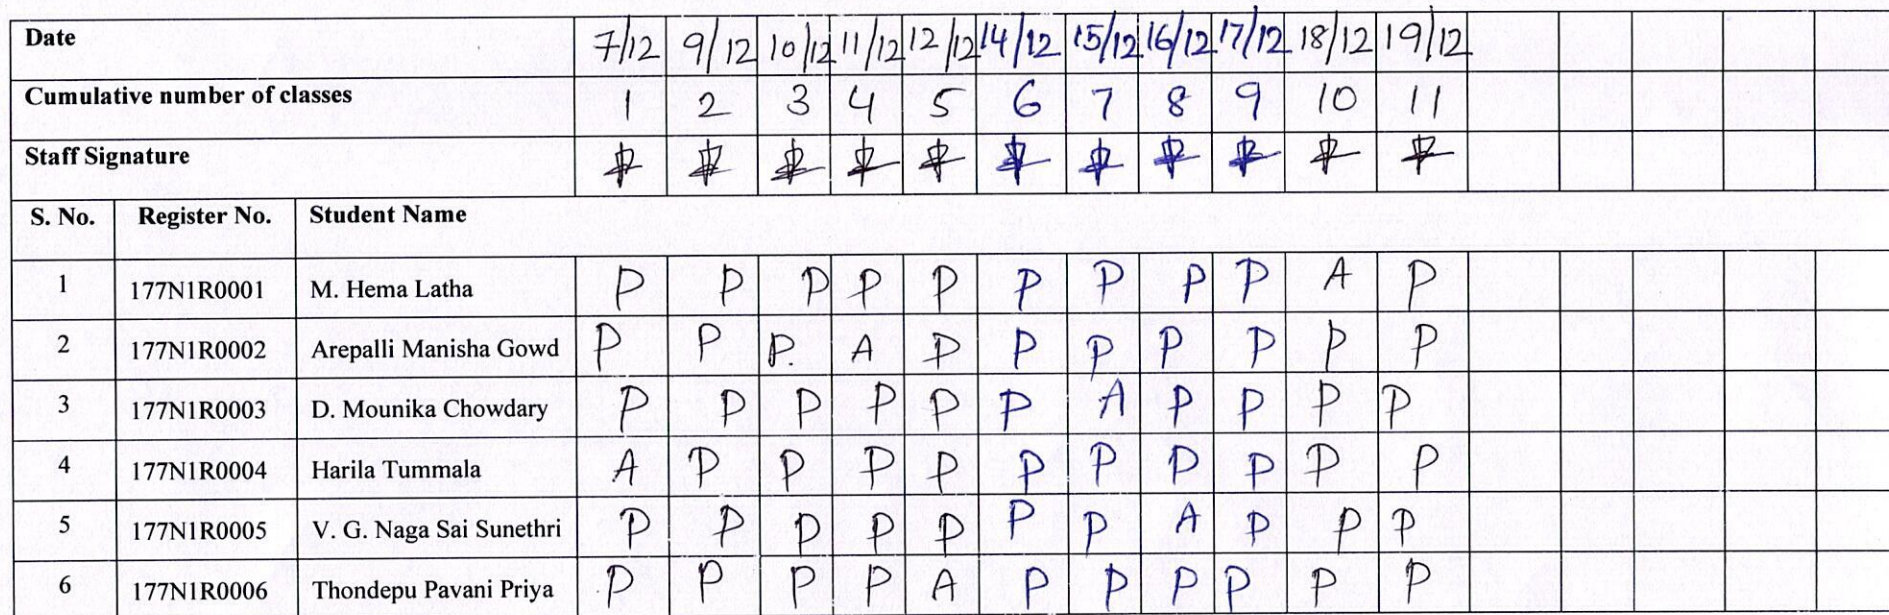 Date 7/12 9/12 10/12 11/12 12/12 14/12 15/12 16/12 17/12 18/12 19/12
Cumulative number of classes 1 2 3 4 5 6 7 8 9 10 11
Staff Signature
S. No. Register No. Student Name
1 177N1R0001 M. Hema Latha P P P P P P P P P A P
2 177N1R0002 Arepalli Manisha Gowd P P P. A P P P P P P P
3 177N1R0003 D. Mounika Chowdary P P P P P P A P P P P
4 177N1R0004 Harila Tummala A P P P P P P P P P P
5 177N1R0005 V. G. Naga Sai Sunethri P P P P P P P A P P P
6 177N1R0006 Thondepu Pavani Priya P P P P A P P P P P P